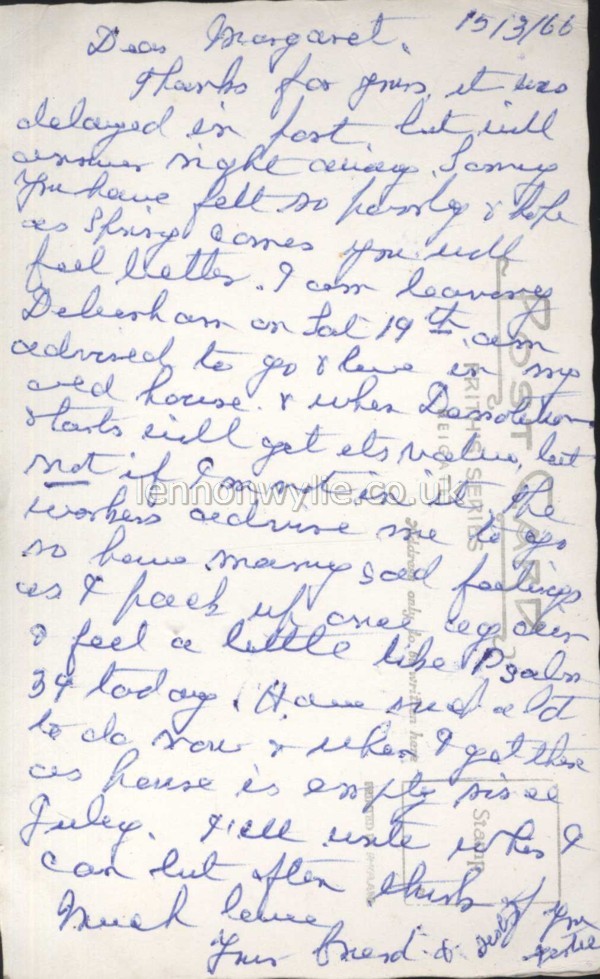 15/3/66
Dear Margaret.
Thanks for yours, it was
delayed in post but will
answer right away. Sorry
you have felt so poorly & hope
as Spring comes you will
feel better. I am leaving
Debenham on Sat 19th. am
advised to go & live in my
old house. & when Demolition
starts will get its value, but
not if I'm not in it, the
workers advise me to go
so have many sad feelings
as I pack up once again
& feel a little like Psalm
34 today. Have such a lot
to do now & when I get there
as house is empty since
July. Will write when I
can but often think of you
Much love
Your friend &
POST CARD
FRITH'S SERIES
REIGATE
Address only to be written here
Stamp
PRINTED
lennonwylie.co.uk